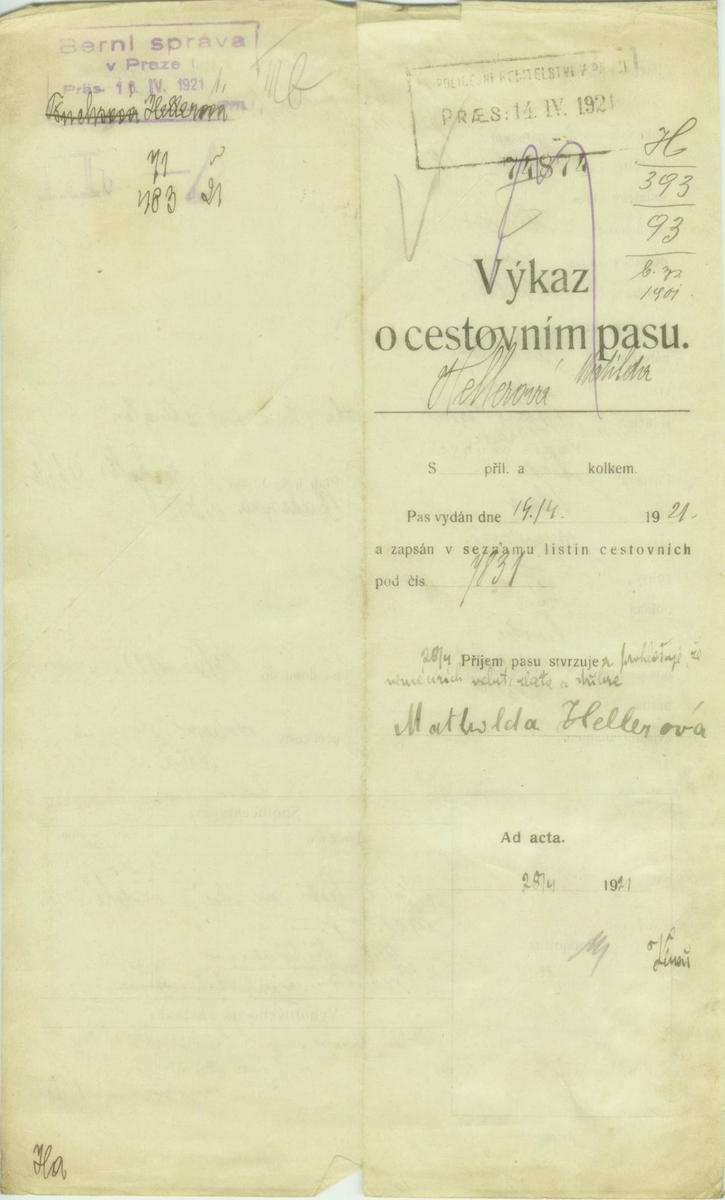 Berní správa
v Praze I.
Präs. 16. IV. 1921
Hellerová
71
483 21
POLICEJNÍ ŘEDITELSTVÍ V
PRÆS: 14. IV. 1921
74874
H
393
93
1901
Výkaz
o cestovním pasu.
Hellerová Matilda
S příl. a kolkem.
Pas vydán dne 14./4. 1921.
a zapsán v seznamu listin cestovních
pod čís. 7831
28/4 Příjem pasu stvrzuje a prohlašuje, že
Mathilda Hellerová
Ad acta.
28/4 1921
Ha